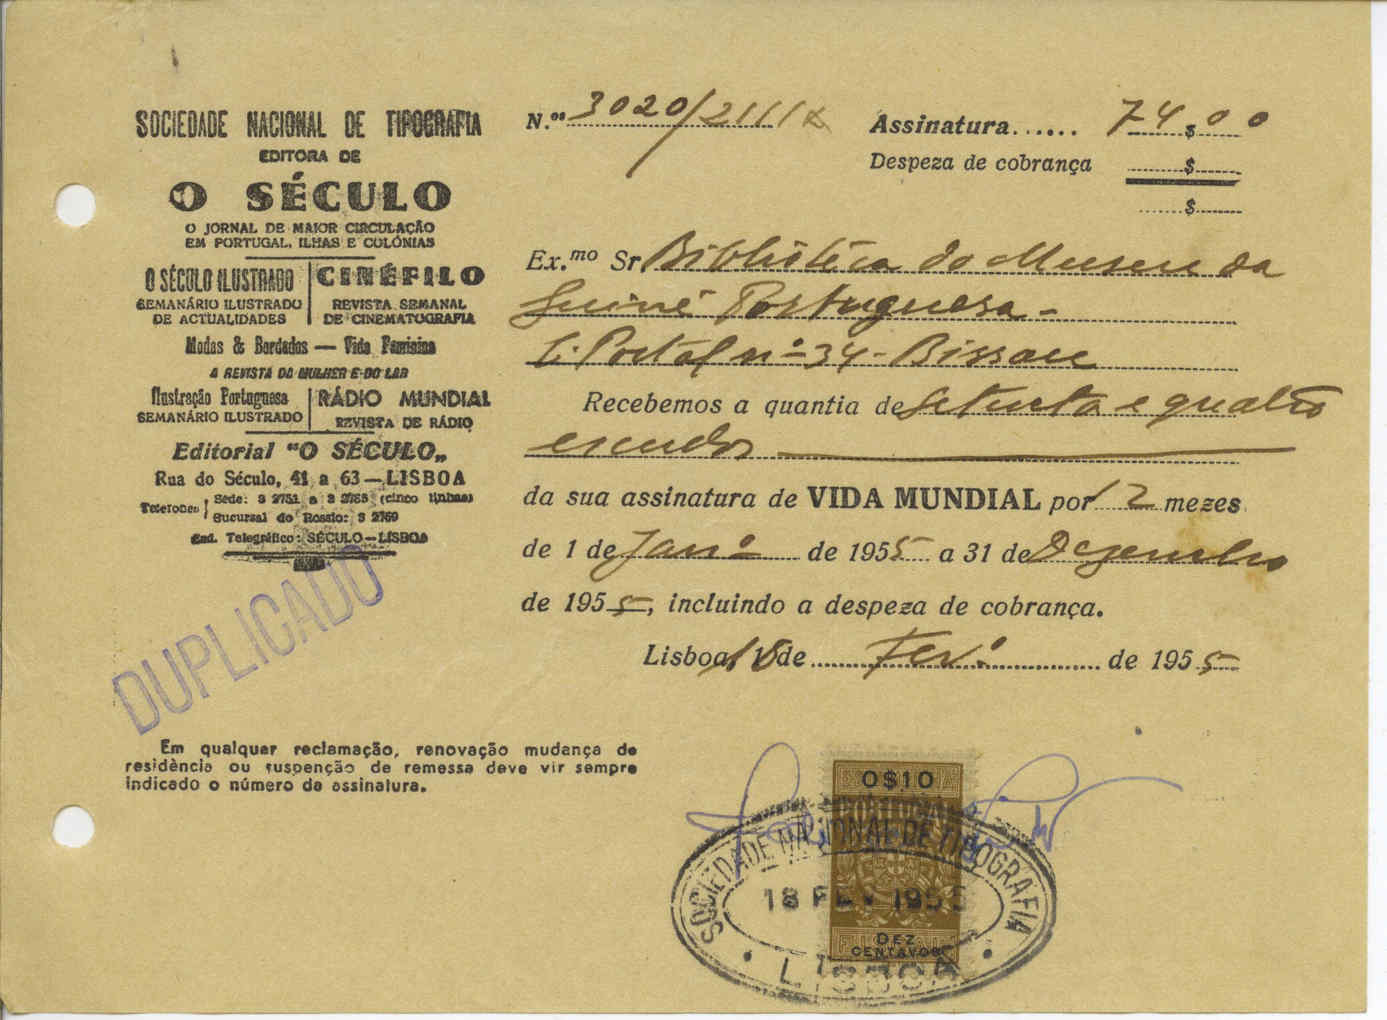 SOCIEDADE NACIONAL DE TIPOGRAFIA
EDITORA DE
O SÉCULO
O JORNAL DE MAIOR CIRCULAÇÃO
EM PORTUGAL, ILHAS E COLÓNIAS
O SÉCULO ILUSTRADO
SEMANÁRIO ILUSTRADO
DE ACTUALIDADES
CINÉFILO
REVISTA SEMANAL
DE CINEMATOGRAFIA
Modas & Bordados — Vida Feminina
A REVISTA DA MULHER E DO LAR
Ilustração Portuguesa
SEMANÁRIO ILUSTRADO
RÁDIO MUNDIAL
REVISTA DE RÁDIO
Editorial "O SÉCULO„
Rua do Século, 41 a 63—LISBOA
Telefones Sede: 3 2751 a 3 2755 (cinco linhas)
Sucursal do Rossio: 3 2769
End. Telegráfico: SÉCULO—LISBOA
DUPLICADO
N.os 3020/
Assinatura...... 74$00
Despeza de cobrança $
$
Ex.mo Sr Biblióteca do Museu da
Guiné Portuguesa-
C. Postal nº 34- Bissau
Recebemos a quantia de Setenta e quatro
escudos
da sua assinatura de VIDA MUNDIAL por 12 mezes
de 1 de Janº de 1955 a 31 de Dezembro
de 1955, incluindo a despeza de cobrança.
Lisboa, 18 de Fev.º de 1955
Em qualquer reclamação, renovação mudança de
residência ou suspenção de remessa deve vir sempre
indicado o número da assinatura.
0$10
PORTUGAL
SOCIEDADE NACIONAL DE TIPOGRAFIA
18 FEV 1955
FISCAL
DEZ
CENTAVOS
LISBOA